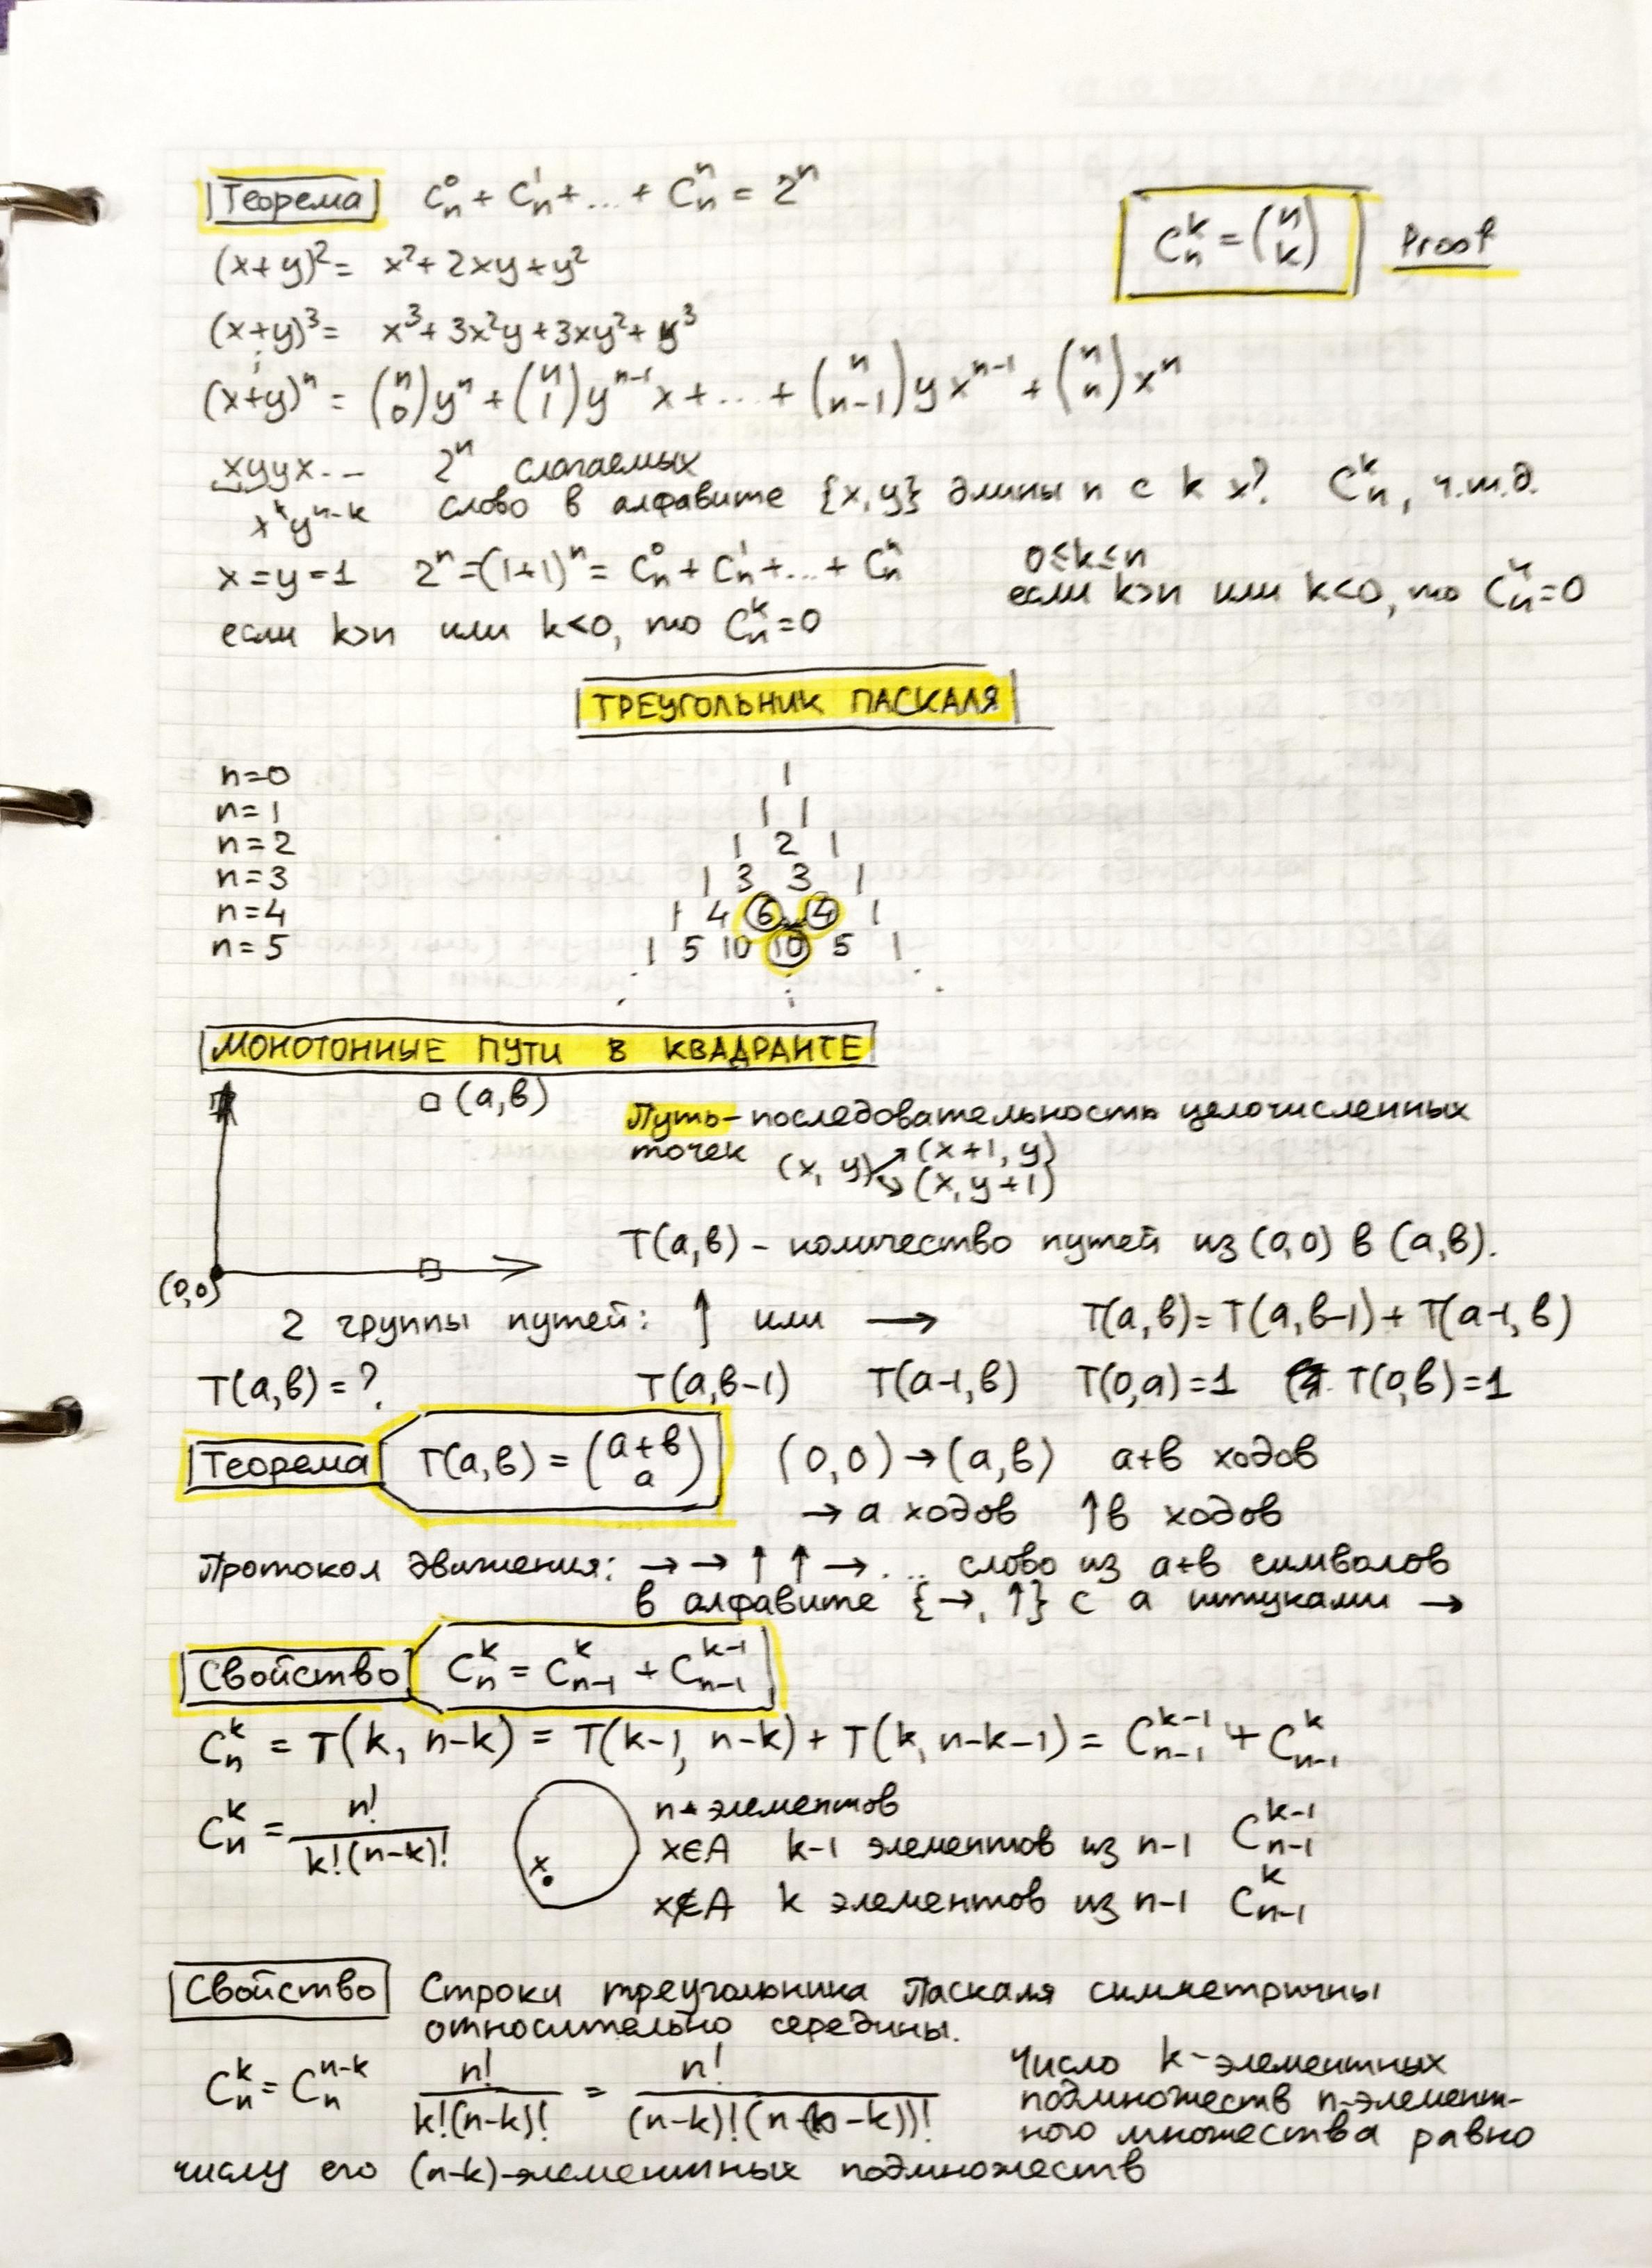 Теорема C_n^0 + C_n^1 + ... + C_n^n = 2^n
(x+y)^2 = x^2 + 2xy + y^2
C_n^k = (n k) Proof
(x+y)^3 = x^3 + 3x^2y + 3xy^2 + y^3
(x+y)^n = (n 0) y^n + (n 1) y^{n-1} x + ... + (n n-1) y x^{n-1} + (n n) x^n
xyyx... 2^n слагаемых
x^k y^{n-k} слово в алфавите {x,y} длины n с k x? C_n^k, ч.т.д.
x=y=1 2^n = (1+1)^n = C_n^0 + C_n^1 + ... + C_n^n 0≤k≤n
если k>n или k<0, то C_n^k=0
если k>n или k<0, то C_n^k=0
ТРЕУГОЛЬНИК ПАСКАЛЯ
n=0 1
n=1 1 1
n=2 1 2 1
n=3 1 3 3 1
n=4 1 4 6 4 1
n=5 1 5 10 10 5 1
МОНОТОННЫЕ ПУТИ В КВАДРАНТЕ
(a,b)
Путь - последовательность целочисленных
точек (x, y) ↗ (x+1, y)
↘ (x, y+1)
T(a,b) - количество путей из (0,0) в (a,b).
(0,0)
2 группы путей: ↑ или → T(a,b) = T(a,b-1) + T(a-1,b)
T(a,b) = ? T(a,b-1) T(a-1,b) T(0,a)=1 T(0,b)=1
Теорема T(a,b) = (a+b a) (0,0) → (a,b) a+b ходов
→ a ходов ↑ b ходов
Протокол движения: → → ↑ ↑ → ... слово из a+b символов
в алфавите {→, ↑} с a штуками →
Свойство C_n^k = C_{n-1}^k + C_{n-1}^{k-1}
C_n^k = T(k, n-k) = T(k-1, n-k) + T(k, n-k-1) = C_{n-1}^{k-1} + C_{n-1}^k
C_n^k = n!/(k!(n-k)!) x n элементов
x∈A k-1 элементов из n-1 C_{n-1}^{k-1}
x∉A k элементов из n-1 C_{n-1}^k
Свойство Строки треугольника Паскаля симметричны
относительно середины.
C_n^k = C_n^{n-k} n!/(k!(n-k)!) = n!/((n-k)!(n-(n-k))!) Число k-элементных
подмножеств n-элемент-
ного множества равно
числу его (n-k)-элементных подмножеств